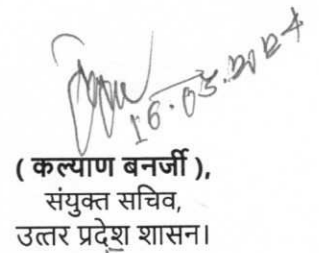 16.03.2024
( कल्याण बनर्जी ),
संयुक्त सचिव,
उत्तर प्रदेश शासन।